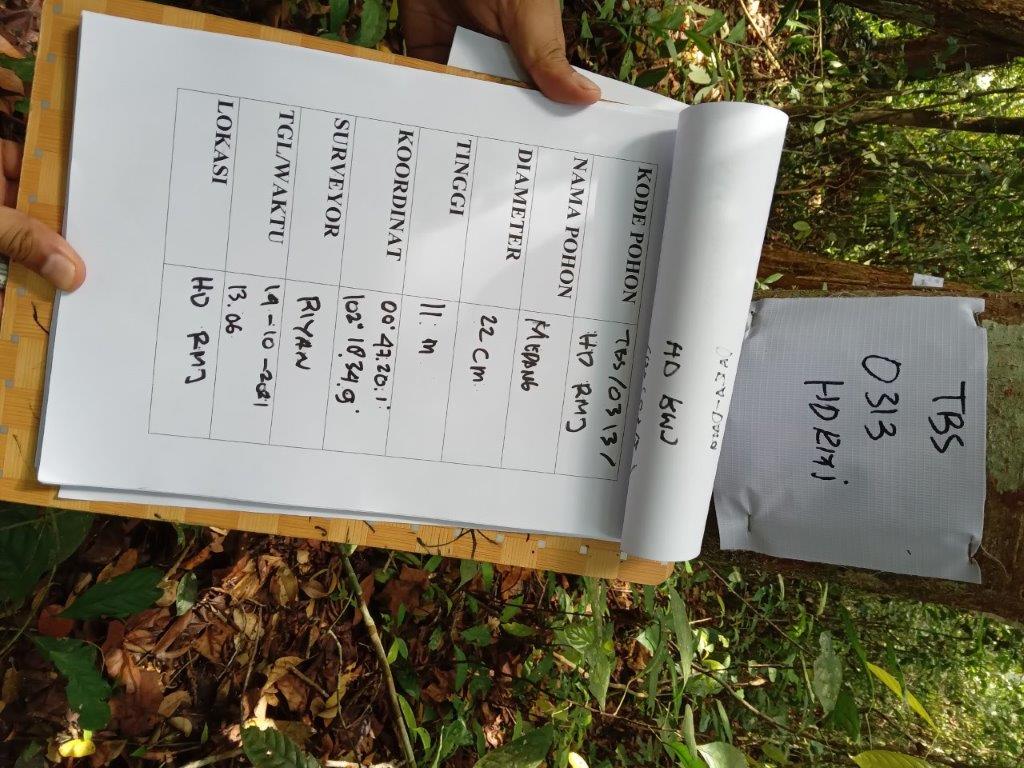 TBS
0313
HD RMJ
HD RWJ
KODE POHON
TBS/0313/
HD RMJ
NAMA POHON
MEDANG
DIAMETER
22 cm
TINGGI
11. m
KOORDINAT
00° 47.20.1"
102° 18.34.9"
SURVEYOR
RIYAN
TGL/WAKTU
19-10-2021
13.06
LOKASI
HD RMJ